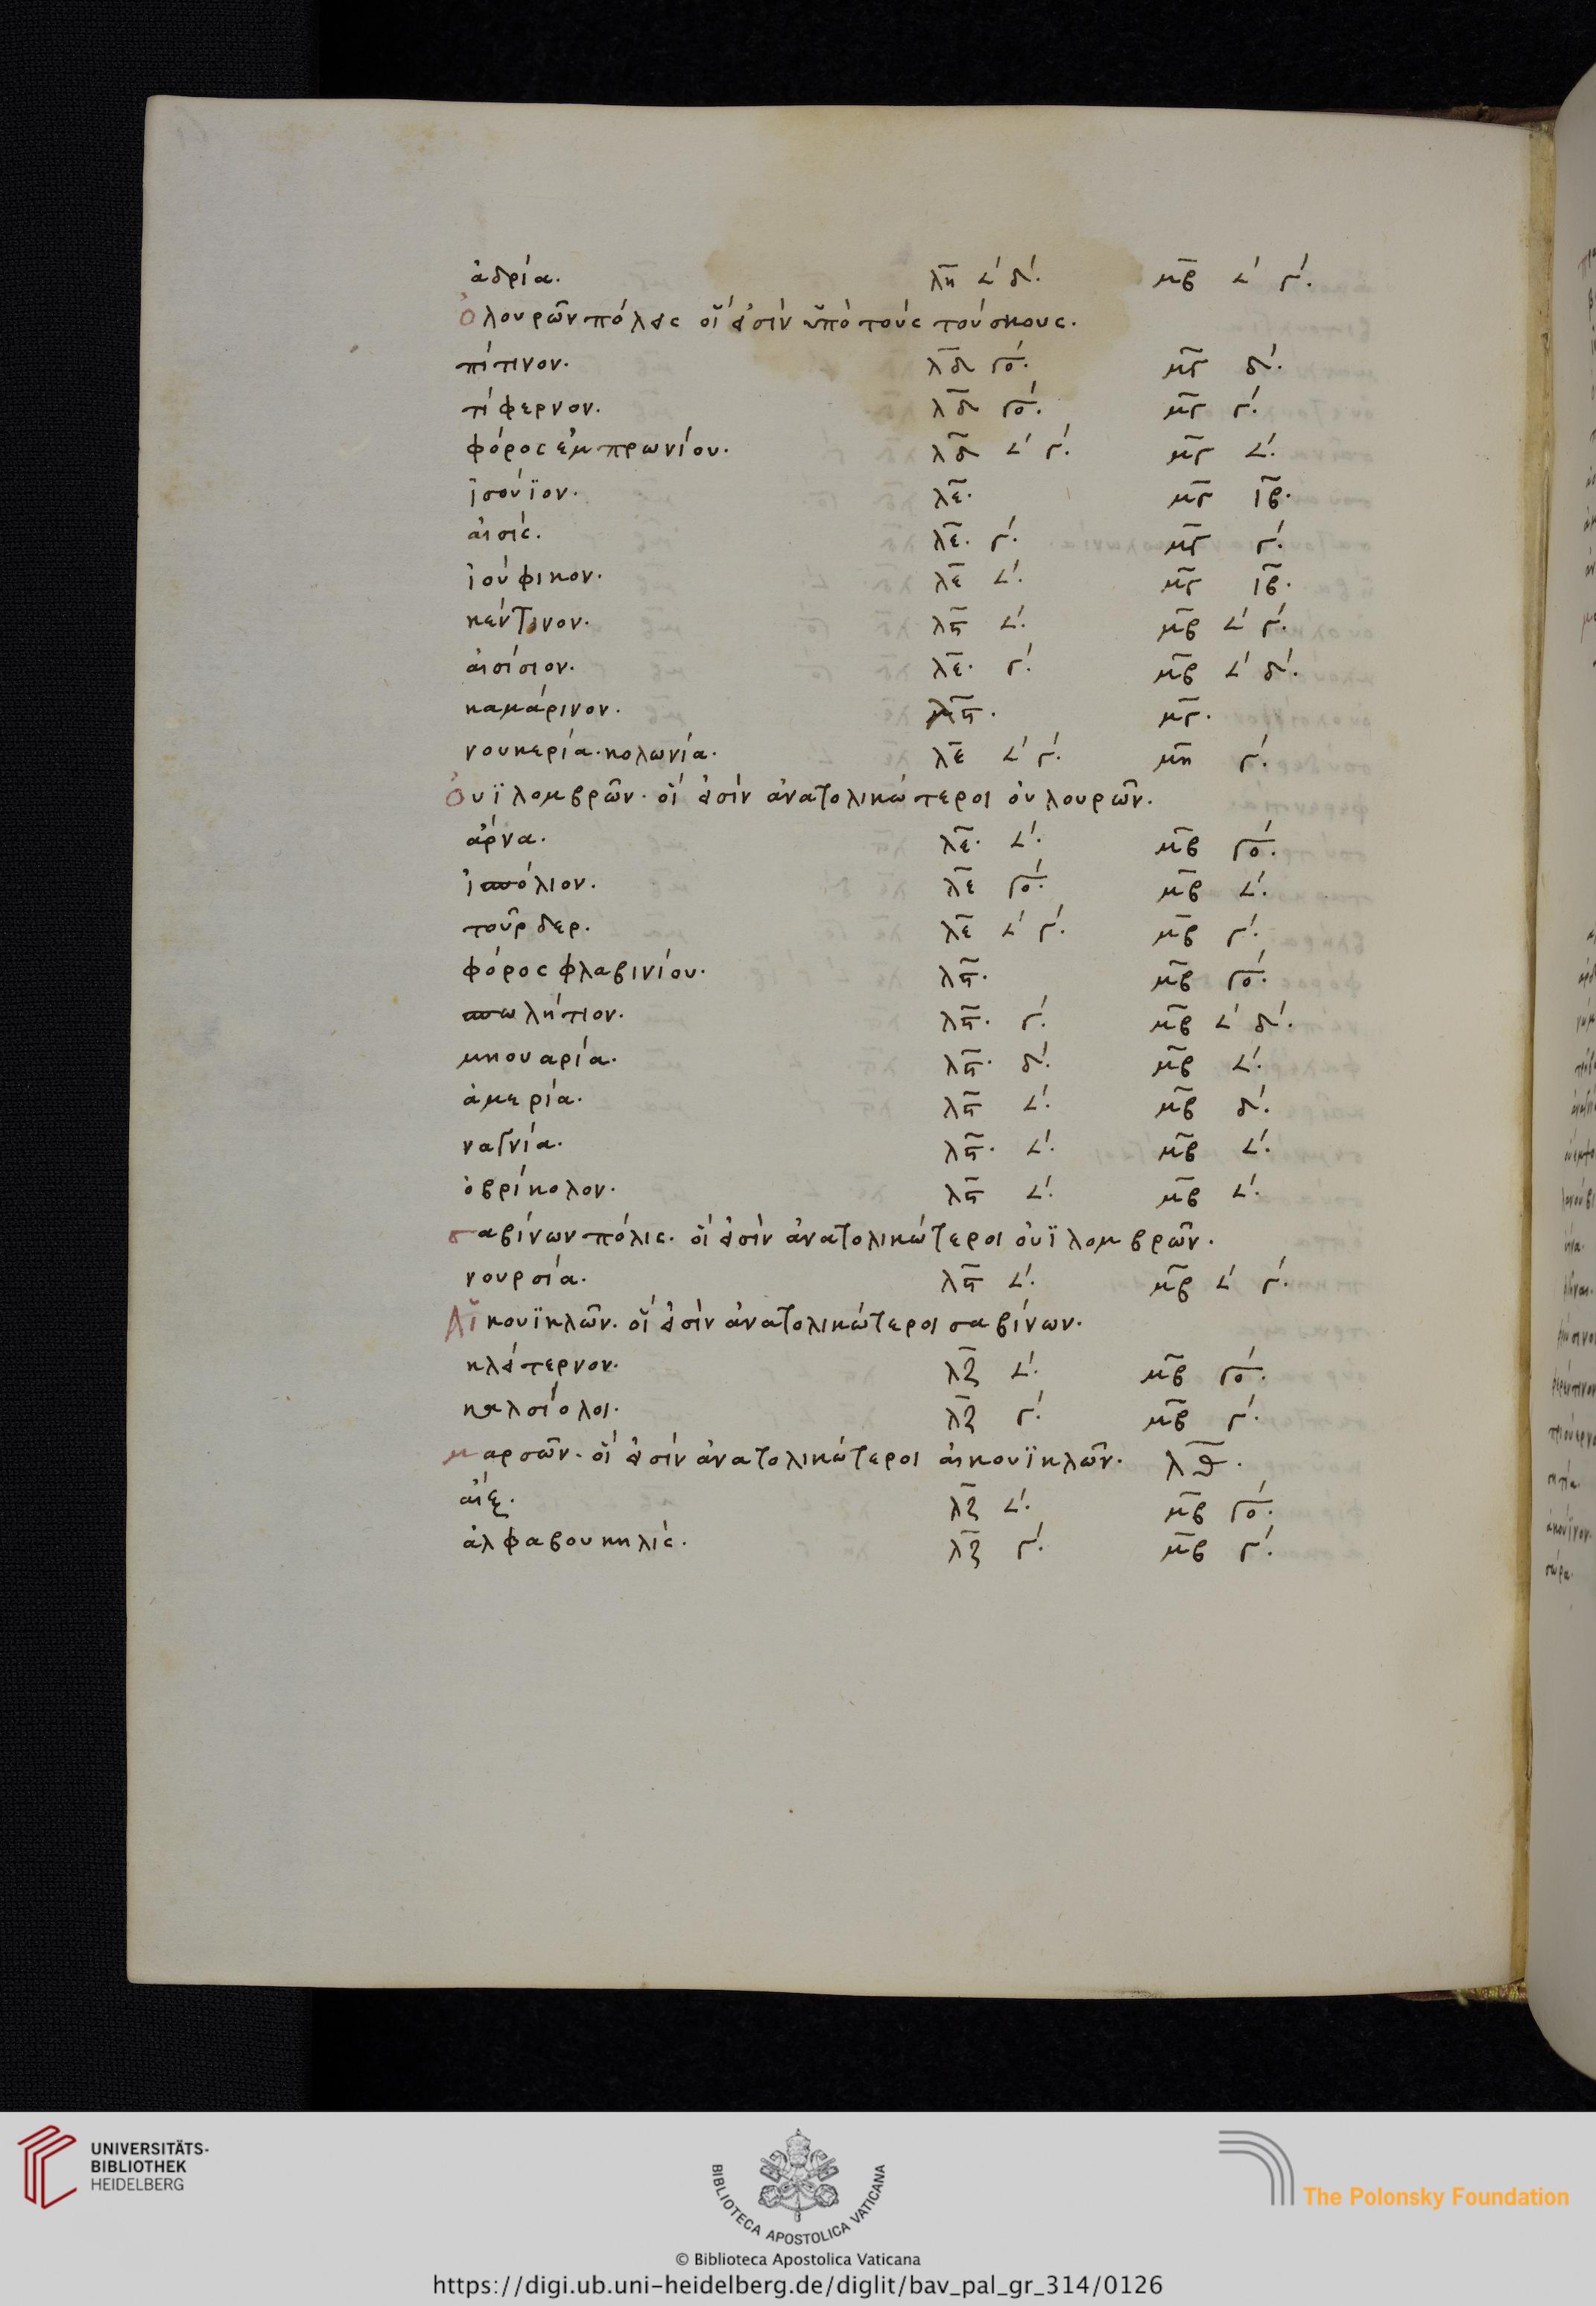 ἀδρία. λη ∠΄ δ΄. μβ ∠΄ γ΄.
Ὀλουρῶν πόλεις οἵ εἰσὶν ὑπὸ τοὺς τούσκους.
πίτινον. λδ γο΄. μγ δ΄.
τίφερνον. λδ γο΄. μγ γ΄.
φόρος ἐμπρωνίου. λδ ∠΄ γ΄. μγ ∠΄.
ἰσούϊον. λε. μγ ιβ.
αἰσίς. λε. γ΄. μγ γ΄.
ἰούφικον. λε ∠΄. μγ ιβ.
κέντινον. λϛ ∠΄. μβ ∠΄ γ΄.
αἰσίσιον. λε. γ΄. μβ ∠΄ δ΄.
καμάρινον. λϛ. μγ.
νουκερία. κολωνία. λε ∠΄ γ΄. μη γ΄.
Ὀυϊλομβρῶν. οἵ εἰσὶν ἀνατολικώτεροι ὀυλουρῶν.
ἄρνα. λε. ∠΄. μβ γο΄.
ἰσπόλιον. λε γο΄. μβ ∠΄.
τοῦρδερ. λε ∠΄ γ΄. μβ γ΄.
φόρος φλαβινίου. λϛ. μβ γο΄.
σπωλήτιον. λϛ. γ΄. μβ ∠΄ δ΄.
μηουαρία. λϛ. δ΄. μβ ∠΄.
ἀμερία. λϛ ∠΄. μβ δ΄.
ναγνία. λϛ. ∠΄. μβ ∠΄.
ὀβρίκολον. λϛ ∠΄. μβ ∠΄.
σαβίνων πόλις. οἵ εἰσὶν ἀνατολικώτεροι ὀυϊλομβρῶν.
νουρσία. λϛ ∠΄. μβ ∠΄ γ΄.
Αἰκουϊκλῶν. οἵ εἰσὶν ἀνατολικώτεροι σαβίνων.
κλείτερνον. λζ ∠΄. μβ γο΄.
καλσίολοι. λζ γ΄. μβ γ΄.
μαρσῶν. οἵ εἰσὶν ἀνατολικώτεροι αἰκουϊκλῶν. λθ.
αἴξ. λζ ∠΄. μβ γο΄.
ἀλφαβουκηλίς. λζ γ΄. μβ γ΄.
UNIVERSITÄTS-
BIBLIOTHEK
HEIDELBERG
BIBLIOTECA APOSTOLICA VATICANA
The Polonsky Foundation
© Biblioteca Apostolica Vaticana
https://digi.ub.uni-heidelberg.de/diglit/bav_pal_gr_314/0126